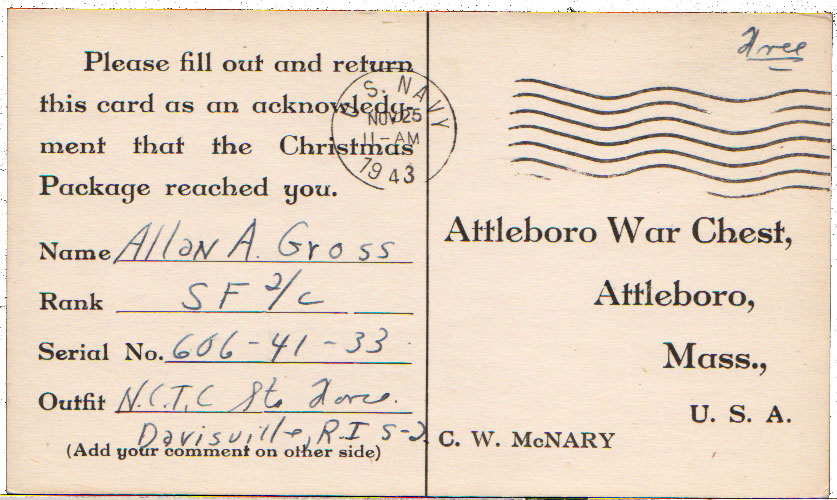 Please fill out and return
this card as an acknowledg-
ment that the Christmas
Package reached you.
Name Allan A. Gross
Rank SF 2/c
Serial No. 606-41-33
Outfit N.C.T.C Sta. Force.
Davisville, R I S-2
(Add your comment on other side)
U.S. NAVY
NOV 25
11-AM
1943
Free
Attleboro War Chest,
Attleboro,
Mass.,
U. S. A.
C. W. McNARY